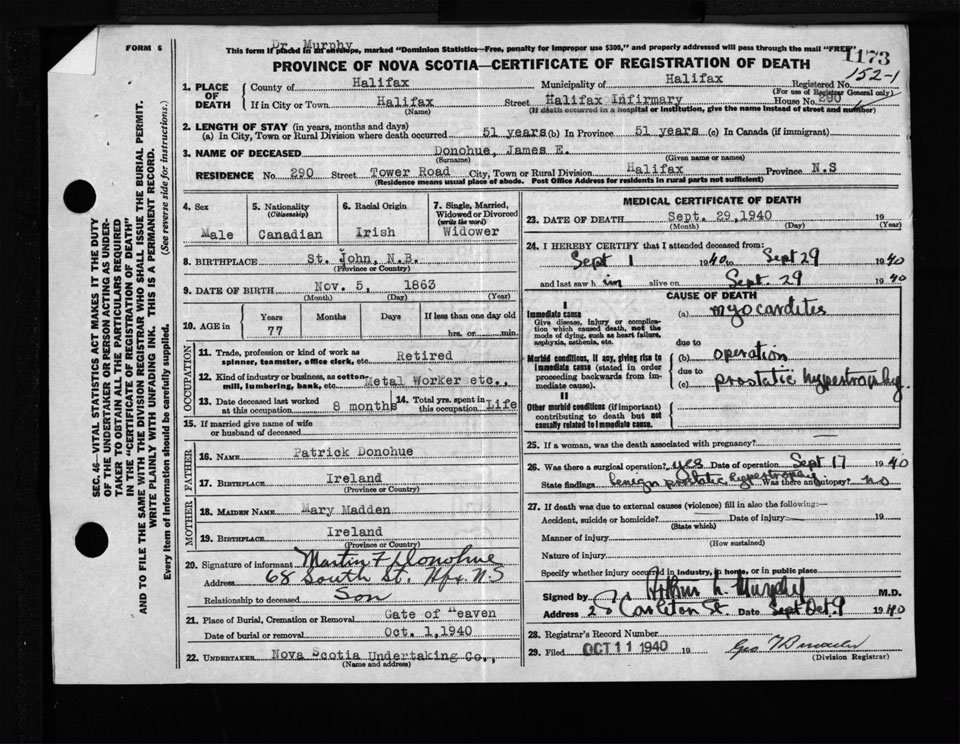 FORM 6
Dr. Murphy
This form if placed in an envelope, marked "Dominion Statistics—Free, penalty for improper use $300," and properly addressed will pass through the mail "FREE"
1173
PROVINCE OF NOVA SCOTIA—CERTIFICATE OF REGISTRATION OF DEATH
152-1
1. PLACE OF DEATH
County of Halifax Municipality of Halifax Registered No.
(For use of Registrar General only)
If in City or Town Halifax Street Halifax Infirmary House No. 290
(Name) (If death occurred in a hospital or institution, give the name instead of street and number)
2. LENGTH OF STAY (in years, months and days)
(a) In City, Town or Rural Division where death occurred 51 years (b) In Province 51 years (c) In Canada (if immigrant)
3. NAME OF DECEASED Donohue, James E.
(Surname) (Given name or names)
RESIDENCE No. 290 Street Tower Road City, Town or Rural Division Halifax Province N.S
(Residence means usual place of abode. Post Office Address for residents in rural parts not sufficient)
4. Sex Male
5. Nationality (Citizenship) Canadian
6. Racial Origin Irish
7. Single, Married, Widowed or Divorced (write the word) Widower
8. BIRTHPLACE St. John, N.B.
(Province or Country)
9. DATE OF BIRTH Nov. 5, 1863
(Month) (Day) (Year)
10. AGE in Years Months Days If less than one day old
77 hrs. or min.
OCCUPATION
11. Trade, profession or kind of work as spinner, teamster, office clerk, etc. Retired
12. Kind of industry or business, as cotton mill, lumbering, bank, etc. Metal Worker etc.,
13. Date deceased last worked at this occupation 8 months
14. Total yrs. spent in this occupation Life
15. If married give name of wife or husband of deceased
FATHER
16. NAME Patrick Donohue
17. BIRTHPLACE Ireland
(Province or Country)
MOTHER
18. MAIDEN NAME Mary Madden
19. BIRTHPLACE Ireland
(Province or Country)
20. Signature of informant Martin F Donohue
Address 68 South St. Hfx. N S
Relationship to deceased Son
21. Place of Burial, Cremation or Removal Gate of Heaven
Date of burial or removal Oct. 1, 1940
22. UNDERTAKER Nova Scotia Undertaking Co.,
(Name and address)
MEDICAL CERTIFICATE OF DEATH
23. DATE OF DEATH Sept. 29, 1940 19
(Month) (Day) (Year)
24. I HEREBY CERTIFY that I attended deceased from:
Sept 1 1940 to Sept 29 1940
and last saw him alive on Sept. 29 1940
CAUSE OF DEATH
I
Immediate cause
Give disease, injury or complication which caused death, not the mode of dying, such as heart failure, asphyxia, asthenia, etc.
(a) myocardites
due to
Morbid conditions, if any, giving rise to immediate cause (stated in order proceeding backwards from immediate cause).
(b) operation
due to
(c) prostatic hypertrophy.
II
Other morbid conditions (if important) contributing to death but not causally related to immediate cause.
25. If a woman, was the death associated with pregnancy?
26. Was there a surgical operation? yes Date of operation Sept 17 1940
State findings benign prostatic hypertrophy Was there an autopsy? no
27. If death was due to external causes (violence) fill in also the following:—
Accident, suicide or homicide? Date of injury 19
(State which)
Manner of injury
(How sustained)
Nature of injury
Specify whether injury occurred in industry, in home, or in public place
Signed by Arthur L. Murphy M.D.
Address Carleton St. Date Sept Oct 9 1940
28. Registrar's Record Number
29. Filed OCT 11 1940 19
(Division Registrar)
SEC. 46—VITAL STATISTICS ACT MAKES IT THE DUTY
OF THE UNDERTAKER OR PERSON ACTING AS UNDER-
TAKER TO OBTAIN ALL THE PARTICULARS REQUIRED
IN THE "CERTIFICATE OF REGISTRATION OF DEATH"
AND TO FILE THE SAME WITH THE DIVISION REGISTRAR WHO SHALL ISSUE THE BURIAL PERMIT.
WRITE PLAINLY WITH UNFADING INK. THIS IS A PERMANENT RECORD.
Every item of information should be carefully supplied. (See reverse side for instructions.)